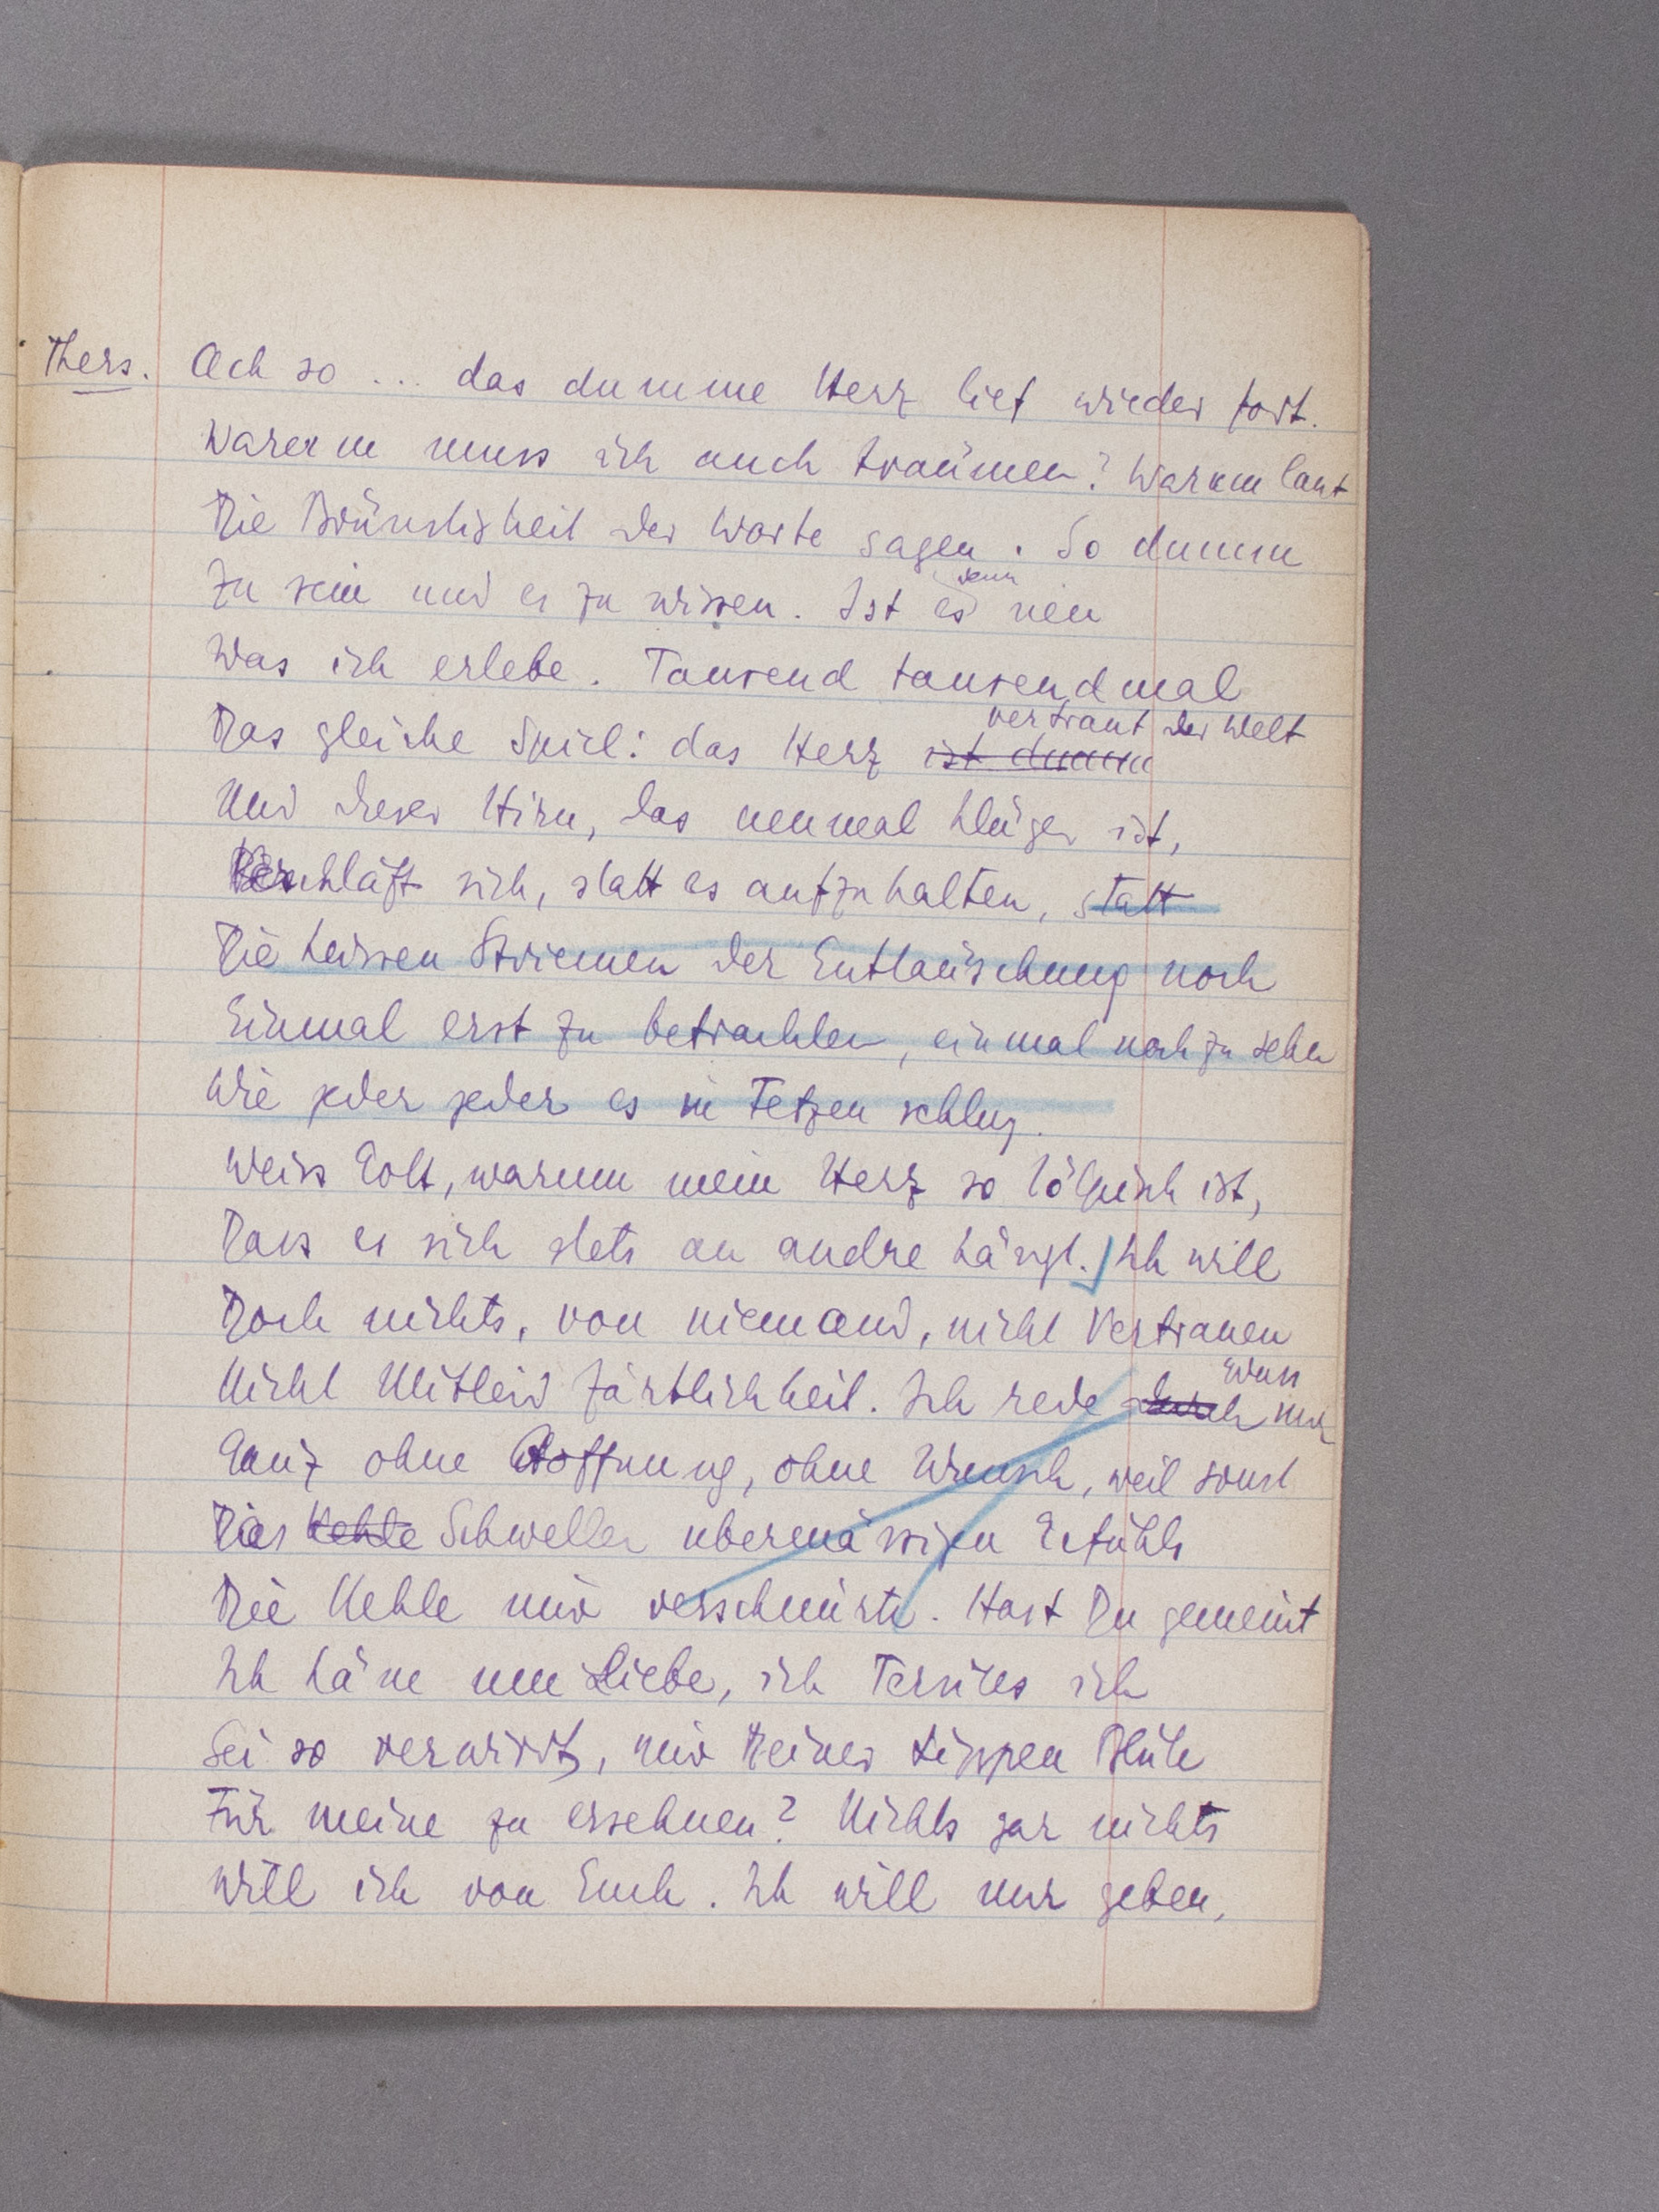 Thers. Ach so ... das dumme Herz lief wieder fort.
Warum muss ich auch träumen? Warum laut
Die Brünstigkeit der Worte sagen. So dumm
Zu sein und es zu wissen. Ist es denn neu
Was ich erlebe. Tausend tausendmal
Das gleiche Spiel: das Herz ist dumm vertraut der Welt
Und dieses Hirn, das neunmal klüger ist,
Verschläft sich, statt es aufzuhalten, statt
Die heissen Striemen der Enttäuschung noch
Einmal erst zu betrachten, einmal noch zu sehn
Wie jeder jeder es in Fetzen schlug.
Weiss Gott, warum mein Herz so tölpisch ist,
Dass es sich stets an andre hängt. Ich will
Doch nichts, von niemand, nicht Vertrauen
Nicht Mitleid Zärtlichkeit. Ich rede doch nur
Ganz ohne Hoffnung, ohne Wunsch, weil sonst
Dies Kehle Schwellen übermässigen Gefühls
Die Kehle mir verschnürte. Hast Du gemeint
Ich käme um Liebe, ich Tersites ich
Sei so verwirrt, mir Deiner Lippen Blüte
Für meine zu ersehnen? Nichts gar nichts
Will ich von Euch. Ich will nur geben,